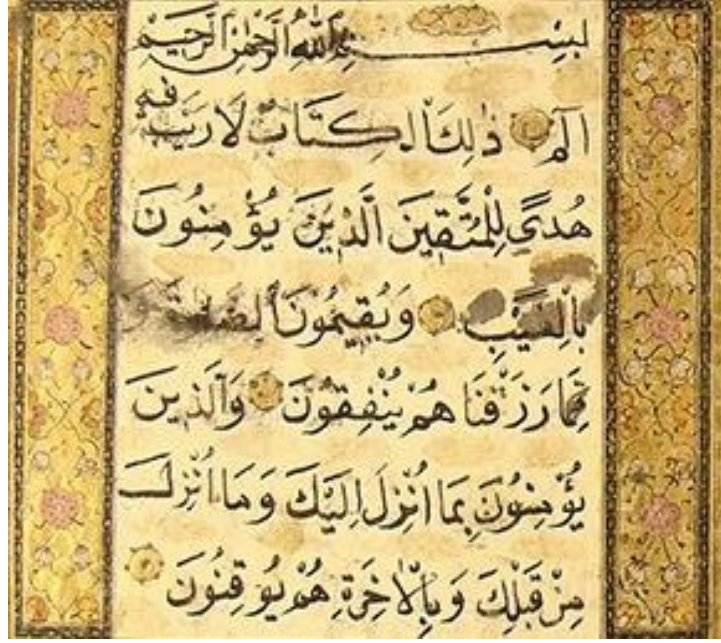 بِسْمِ اللهِ الرَّحْمٰنِ الرَّحِيمِ
الم ذٰلِكَ الْكِتَابُ لَا رَيْبَ فِيهِ
هُدًى لِلْمُتَّقِينَ الَّذِينَ يُؤْمِنُونَ
بِالْغَيْبِ وَيُقِيمُونَ الصَّلٰوةَ
مِمَّا رَزَقْنَاهُمْ يُنْفِقُونَ وَالَّذِينَ
يُؤْمِنُونَ بِمَا اُنْزِلَ اِلَيْكَ وَمَا اُنْزِلَ
مِنْ قَبْلِكَ وَبِالْاٰخِرَةِ هُمْ يُوقِنُونَ